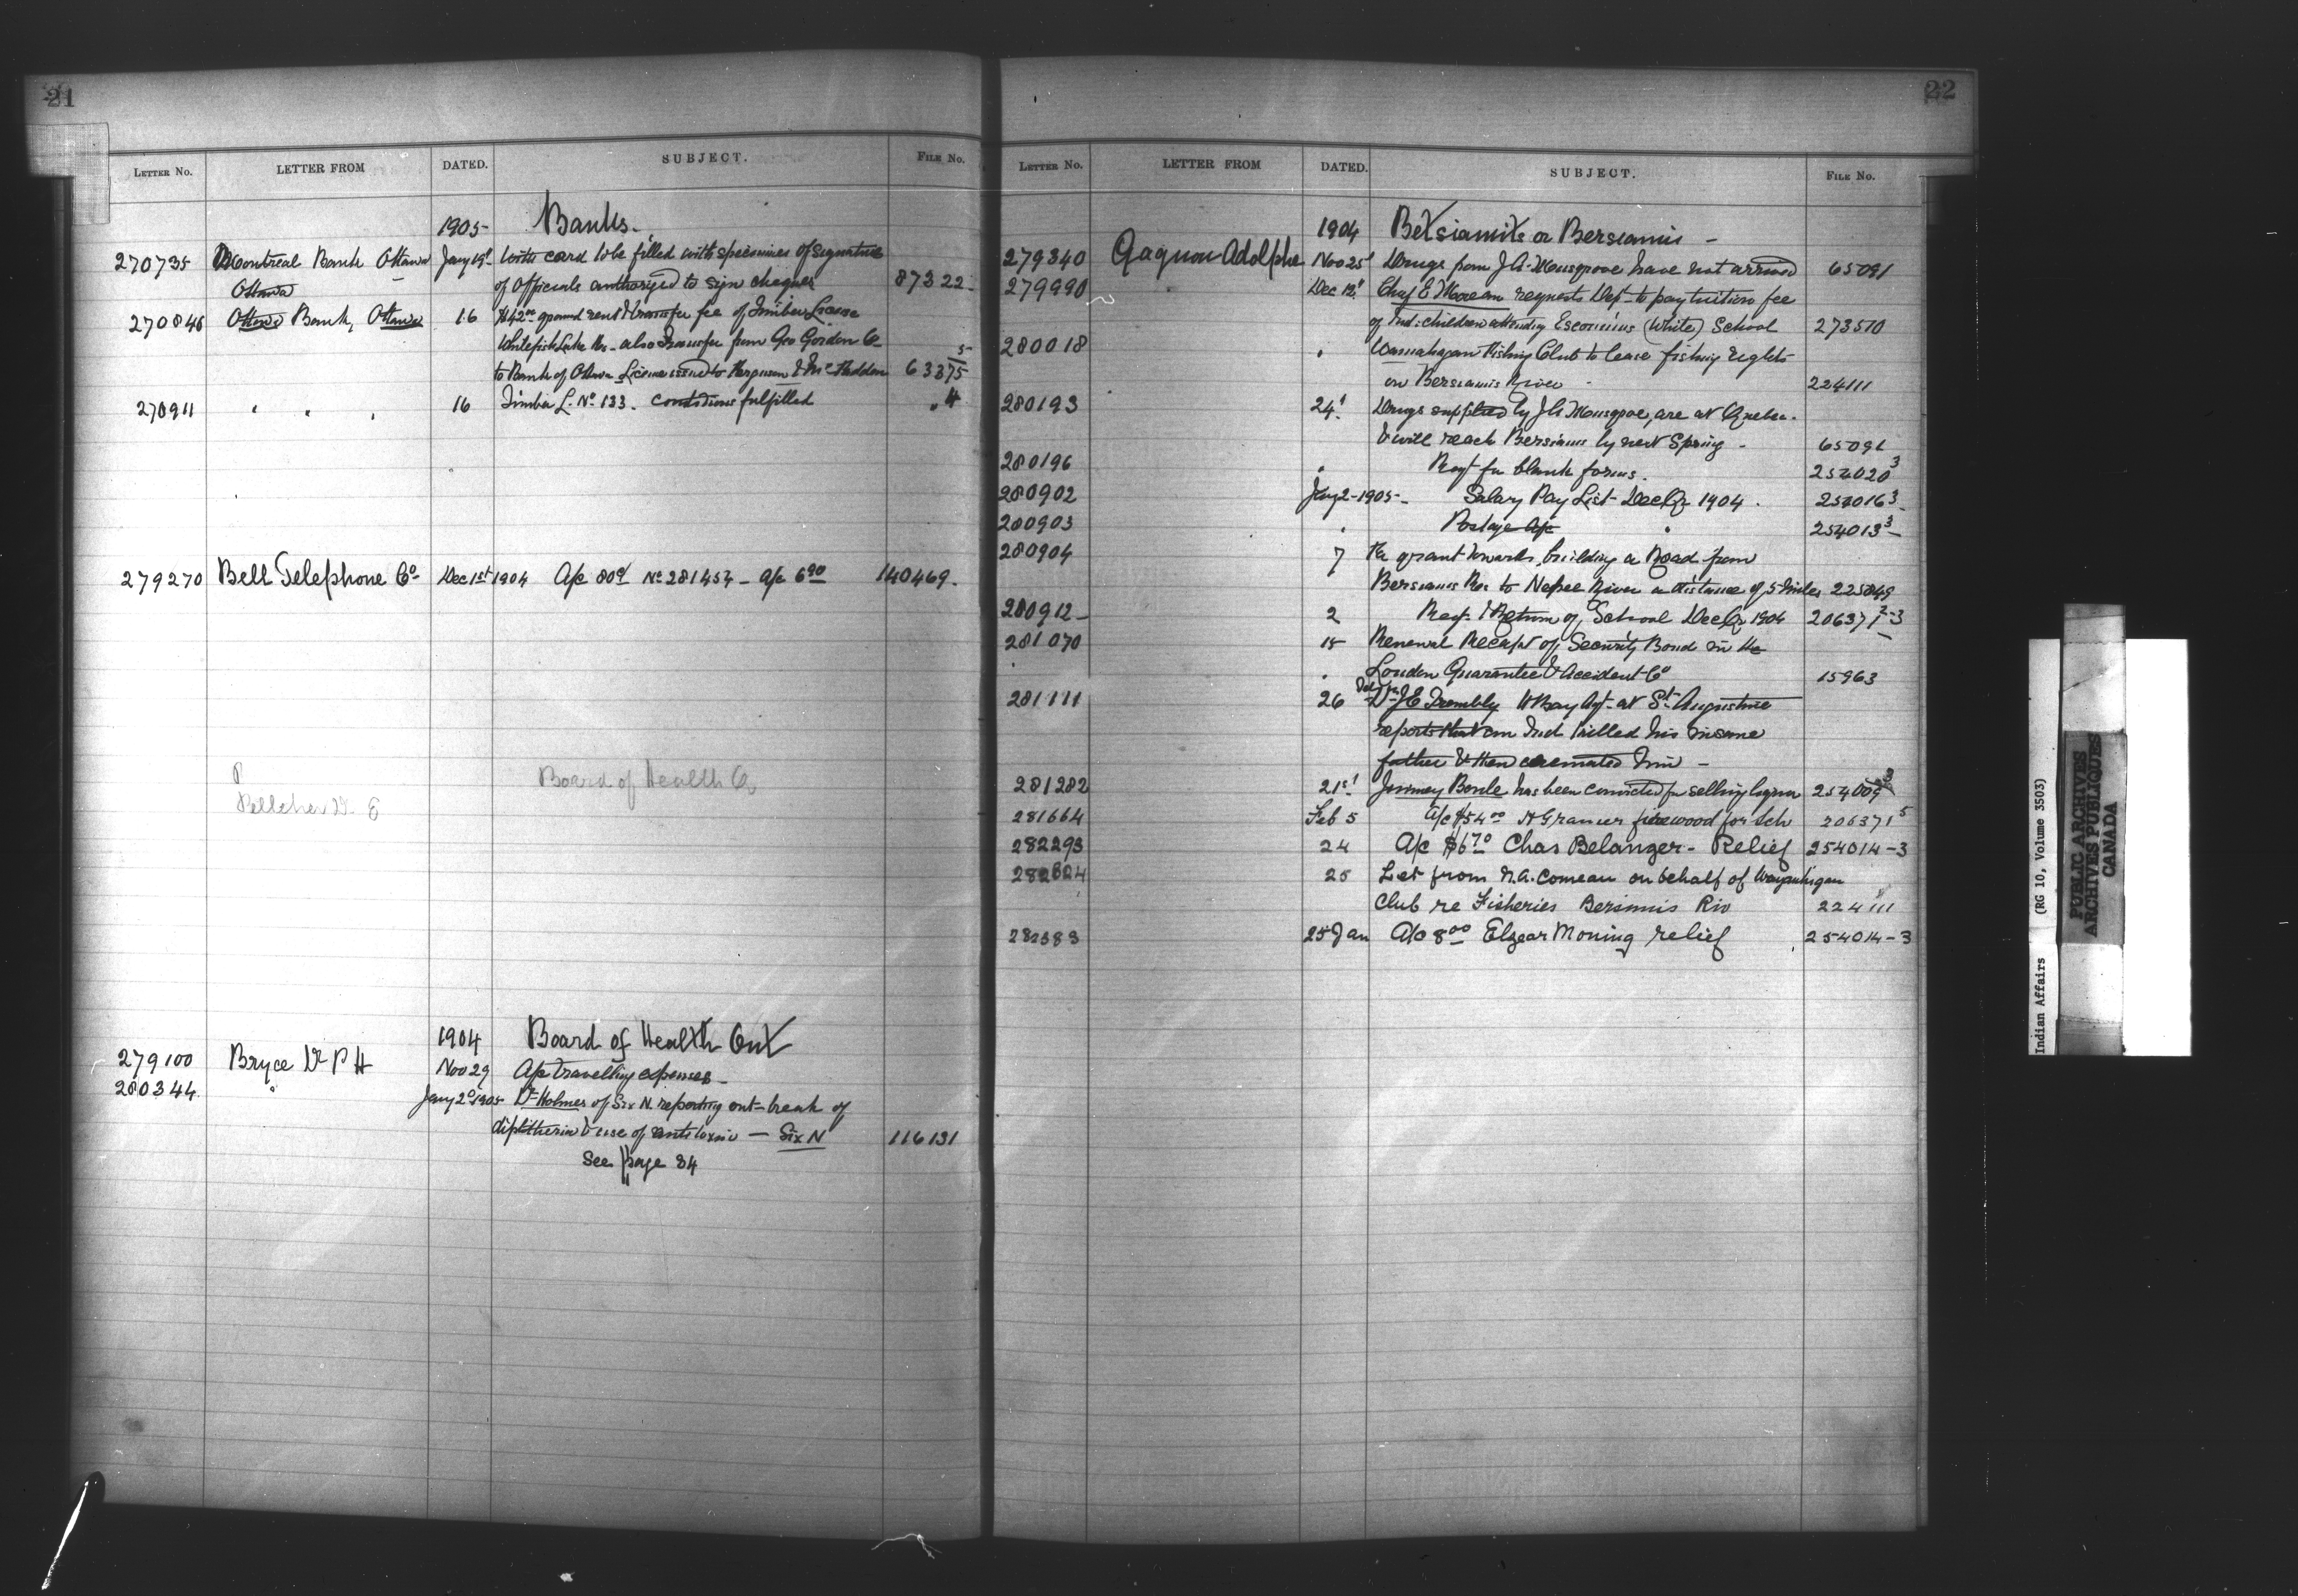 21
LETTER No. LETTER FROM DATED. SUBJECT. FILE No.
1905 Banks.
270735 Montreal Bank Ottawa Jany 19 With card to be filled with specimens of signature
Ottawa of Officials authorized to sign cheques 87322
270846 Ottawa Bank, Ottawa 16 $42.00 ground rent & transfer fee of Timber License
Whitefish Lake Res - also Transfer from Geo Gordon Co
to Bank of Ottawa License issued to Ferguson & McFadden 63375 5
270911 " " " 16 Timber L. No 133. conditions fulfilled " 4
279270 Bell Telephone Co Dec 1st 1904 A/c 80c No 281454 - a/c 6.90 140469.
Board of Health O
Belleher D. E
1904 Board of Health Ont
279100 Bryce Dr P H Nov 29 A/c travelling expenses
280344 " Jany 2 1905 Dr Holmes of Six N. reporting out-break of
diphtheria & use of antitoxin — Six N 116131
See page 84
22
LETTER No. LETTER FROM DATED. SUBJECT. FILE No.
1904 Betsiamits or Bersiamis -
279340 Gagnon Adolphe Nov 25 Drugs from J A Musgrove have not arrived 65091
279990 Dec 12 Chief E Moream requests Dept to pay tuition fee
of Ind: children attending Escoumins (White) School 273570
280018 " Fishing Club to lease fishing rights
on Bersiamis River 224111
280193 24 Drugs supplied by J A Musgrove, are at Quebec
& will reach Bersiamis by next Spring - 65091
280196 " Reqt for blank forms. 254020 3
280902 Jany 2-1905 - Salary Pay List Dec Qr 1904. 254016 3
280903 " Postage A/c " 254013 3
280904 7 Re grant towards building a Road from
Bersiamis Res to Nepee River a distance of 5 miles 225849
280912 2 Rept & Return of School Dec Qr 1904 206371 2-3
281070 18 Renewal Receipt of Security Bond in the
" London Guarantee & Accident Co 15963
281111 26 Dr J E Trembly H Bay Agt at St Augustine
reports that an Ind killed his insane
father & then cremated him -
281282 21st Jimmey Boule has been convicted for selling liquor 254009 3
281664 Feb 5 A/c $54.00 N Granier firewood for Sch 206371 5
282293 24 A/c $6.70 Chas Belanger - Relief 254014-3
282624 25 Let from N.A. Comeau on behalf of
Club re Fisheries Bersimis Riv 224111
282383 25 Jan A/c 8.00 Elzear Moning relief 254014-3
Indian Affairs (RG 10, Volume 3503)
PUBLIC ARCHIVES
ARCHIVES PUBLIQUES
CANADA